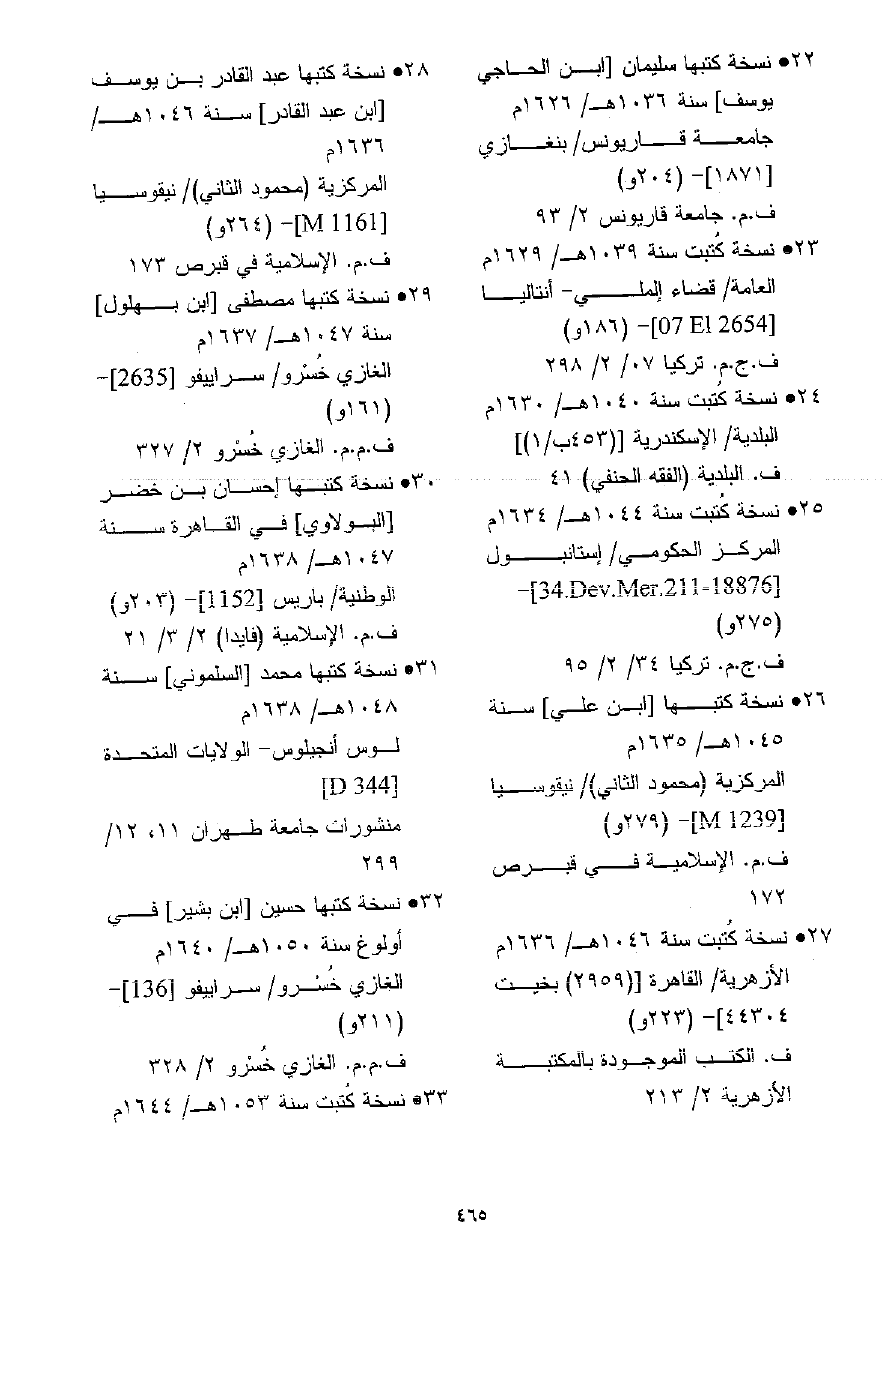 ٢٢• نسخة كتبها سليمان [ابن الحاجي
يوسف] سنة ١٠٣٦هـ/ ١٦٢٦م
جامعة قاريونس/ بنغازي
[١٨٧١]- (٢٠٤و)
ف.م. جامعة قاريونس ٢/ ٩٣
٢٣• نسخة كُتبت سنة ١٠٣٩هـ/ ١٦٢٩م
العامة/ قضاء إلملي- أنتاليا
[07 El 2654]- (١٨٦و)
ف.ج.م. تركيا ٠٧/ ٢/ ٢٩٨
٢٤• نسخة كُتبت سنة ١٠٤٠هـ/ ١٦٣٠م
البلدية/ الإسكندرية [(٤٥٣ب/١)]
ف. البلدية (الفقه الحنفي) ٤١
٢٥• نسخة كُتبت سنة ١٠٤٤هـ/ ١٦٣٤م
المركز الحكومي/ إستانبول
[34.Dev.Mer.211=18876]-
(٢٧٥و)
ف.ج.م. تركيا ٣٤/ ٢/ ٩٥
٢٦• نسخة كتبها [ابن علي] سنة
١٠٤٥هـ/ ١٦٣٥م
المركزية (محمود الثاني)/ نيقوسيا
[M 1239]- (٢٧٩و)
ف.م. الإسلامية في قبرص
١٧٢
٢٧• نسخة كُتبت سنة ١٠٤٦هـ/ ١٦٣٦م
الأزهرية/ القاهرة [(٢٩٥٩) بخيت
٤٤٣٠٤]- (٢٢٣و)
ف. الكتب الموجودة بالمكتبة
الأزهرية ٢/ ٢١٣
٢٨• نسخة كتبها عبد القادر بن يوسف
[ابن عبد القادر] سنة ١٠٤٦هـ/
١٦٣٦م
المركزية (محمود الثاني)/ نيقوسيا
[M 1161]- (٢٦٤و)
ف.م. الإسلامية في قبرص ١٧٣
٢٩• نسخة كتبها مصطفى [ابن بهلول]
سنة ١٠٤٧هـ/ ١٦٣٧م
الغازي خُسْرو/ سراييفو [2635]-
(١٦١و)
ف.م.م. الغازي خُسْرو ٢/ ٣٢٧
٣٠• نسخة كتبها إحسان بن خضر
[البولاوي] في القاهرة سنة
١٠٤٧هـ/ ١٦٣٨م
الوطنية/ باريس [1152]- (٢٠٣و)
ف.م. الإسلامية (فايدا) ٢/ ٣/ ٢١
٣١• نسخة كتبها محمد [السلموني] سنة
١٠٤٨هـ/ ١٦٣٨م
لوس أنجيلوس- الولايات المتحدة
[D 344]
منشورات جامعة طهران ١١، ١٢/
٢٩٩
٣٢• نسخة كتبها حسين [ابن بشير] في
أولوغ سنة ١٠٥٠هـ/ ١٦٤٠م
الغازي خُسْرو/ سراييفو [136]-
(٢١١و)
ف.م.م. الغازي خُسْرو ٢/ ٣٢٨
٣٣• نسخة كُتبت سنة ١٠٥٣هـ/ ١٦٤٤م
٤٦٥